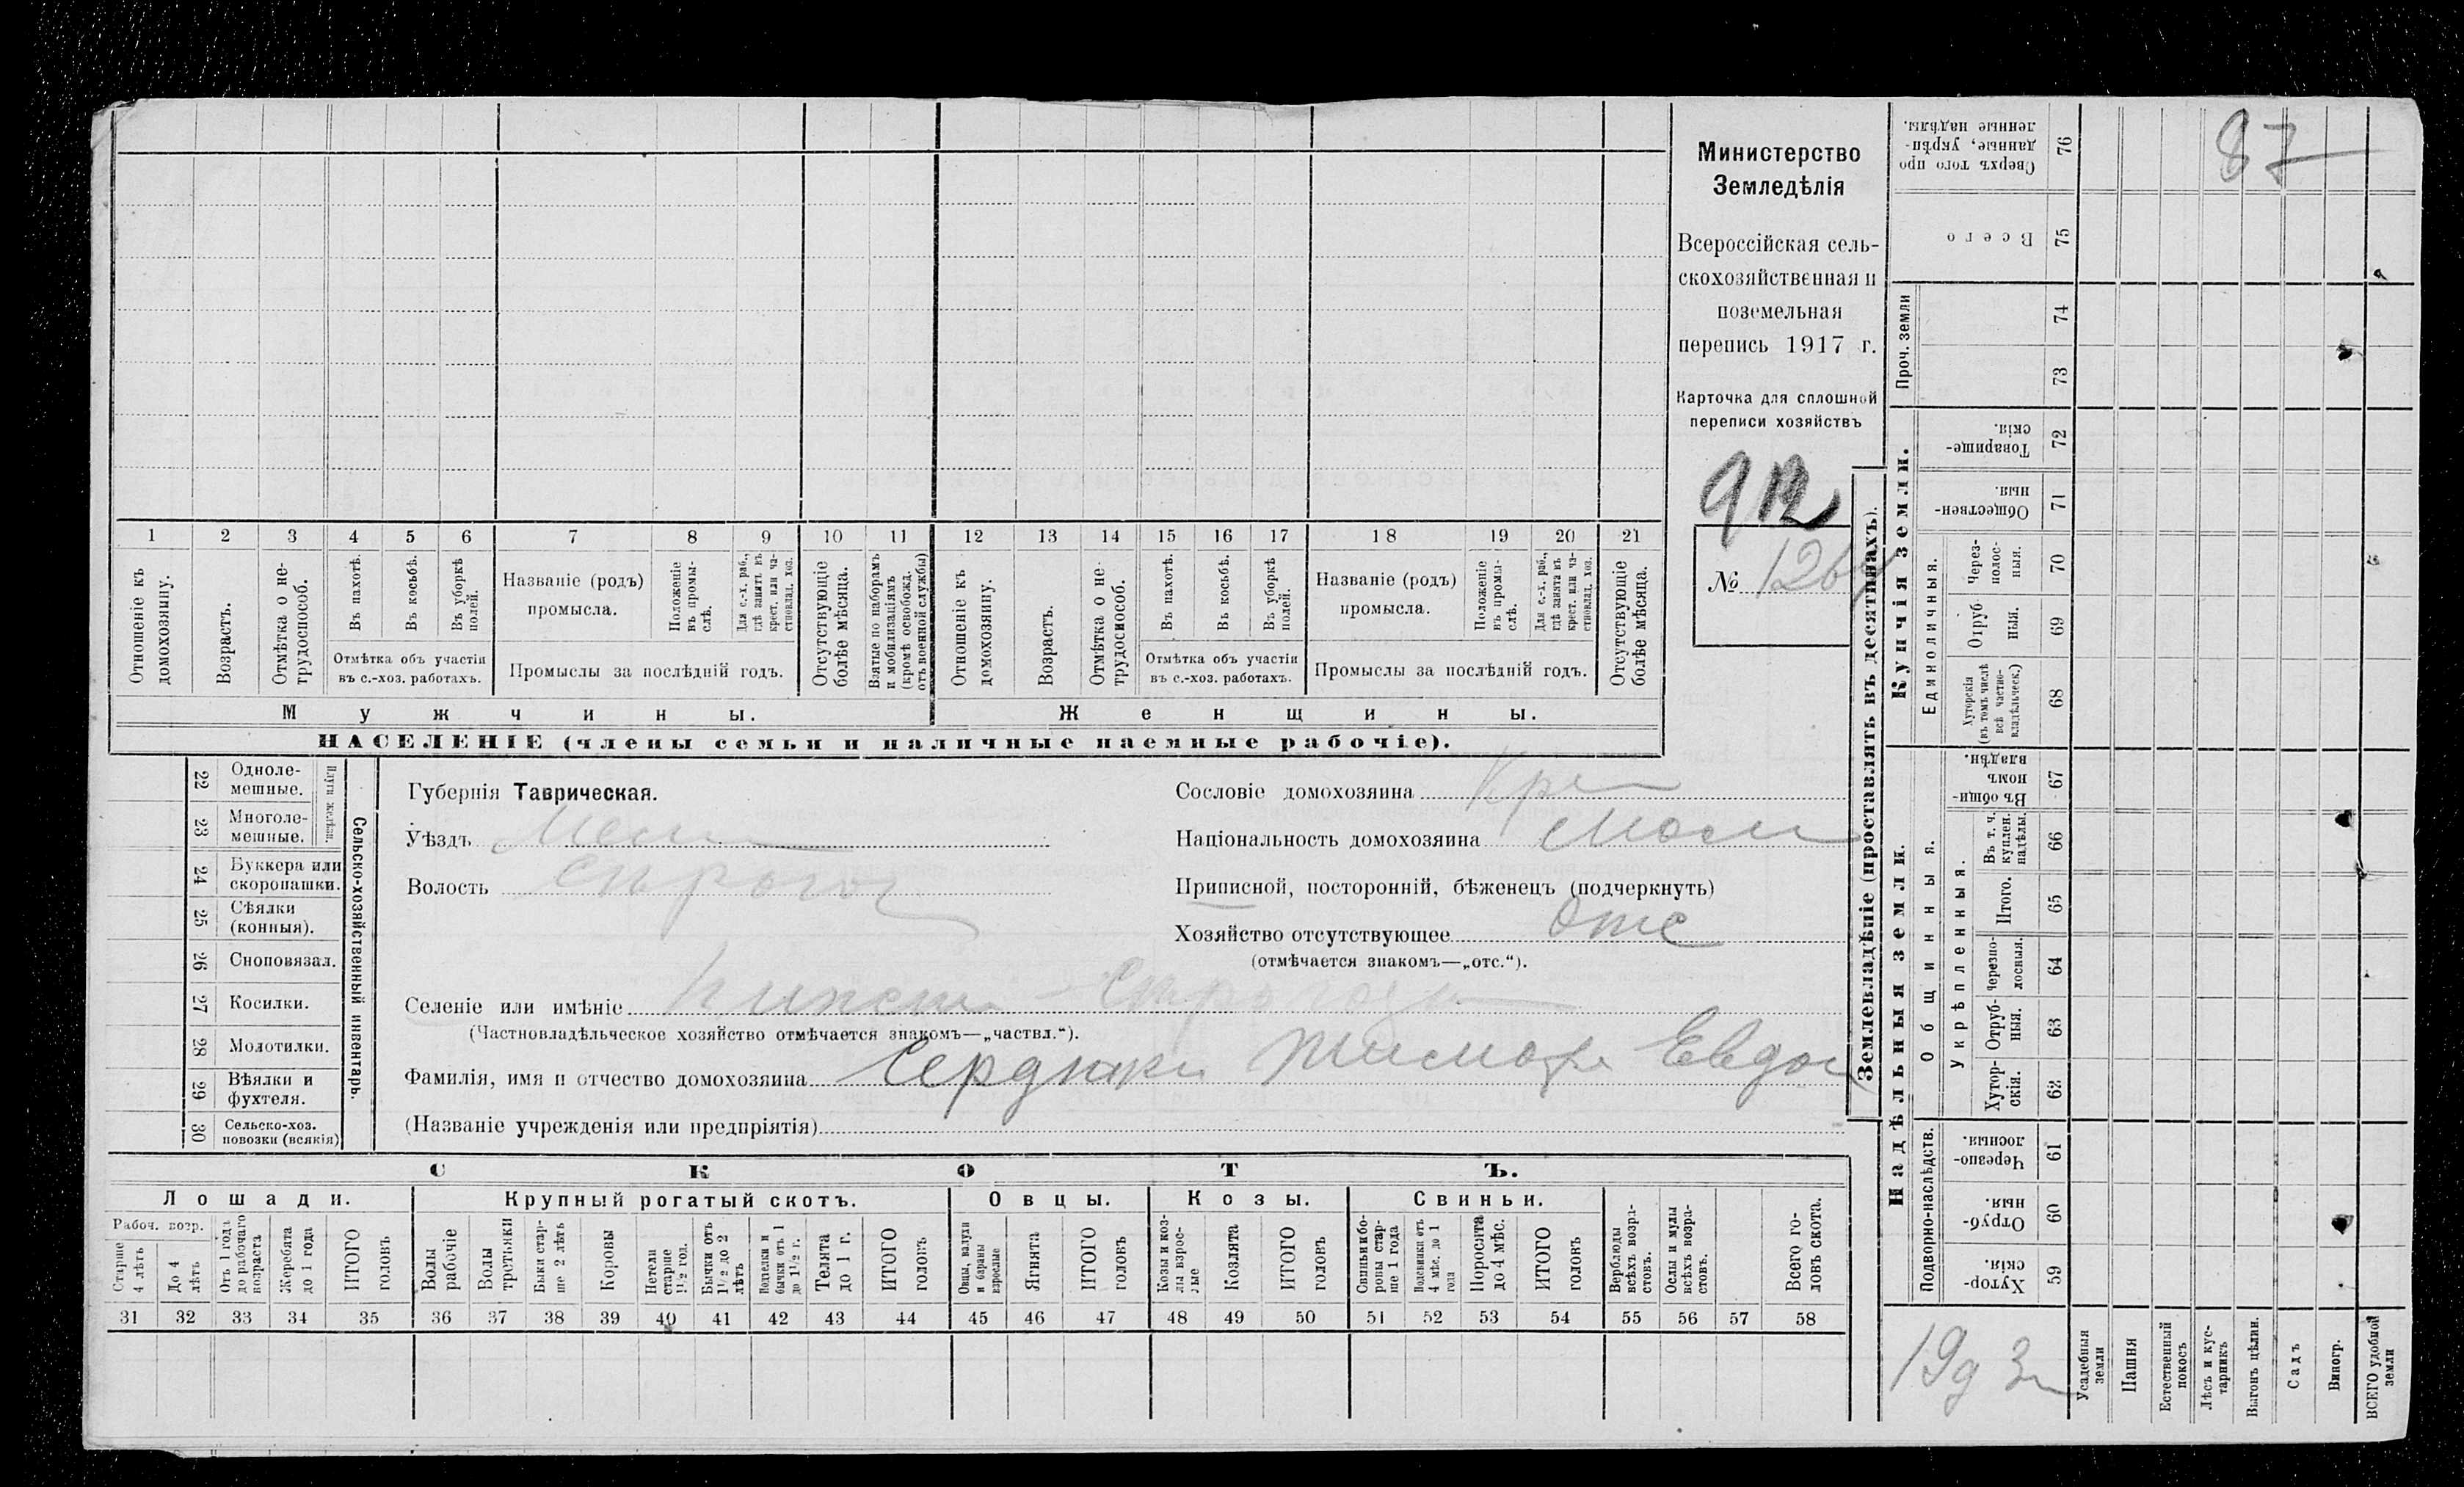 Министерство
Земледѣлія
Всероссійская сель-
скохозяйственная и
поземельная
перепись 1917 г.
Карточка для сплошной
переписи хозяйствъ
912
№ 1264
1 2 3 4 5 6 7 8 9 10 11 12 13 14 15 16 17 18 19 20 21
Отношеніе къ домохозяину.
Возрастъ.
Отмѣтка о не-трудоспособ.
Въ пахотѣ.
Въ косьбѣ.
Въ уборкѣ полей.
Отмѣтка объ участіи
въ с.-хоз. работахъ.
Названіе (родъ)
промысла.
Положеніе въ промы-слѣ.
Для с.-х. раб., гдѣ занятъ въ крест. или ча-стновлад. хоз.
Промыслы за послѣдній годъ.
Отсутствующіе болѣе мѣсяца.
Взятые по наборамъ и мобилизаціямъ (кромѣ освобожд. отъ военной службы)
Отношеніе къ домохозяину.
Возрастъ.
Отмѣтка о не-трудоспособ.
Въ пахотѣ.
Въ косьбѣ.
Въ уборкѣ полей.
Отмѣтка объ участіи
въ с.-хоз. работахъ.
Названіе (родъ)
промысла.
Положеніе въ промы-слѣ.
Для с.-х. раб., гдѣ занята въ крест. или ча-стновлад. хоз.
Промыслы за послѣдній годъ.
Отсутствующіе болѣе мѣсяца.
Мужчины. Женщины.
НАСЕЛЕНІЕ (члены семьи и наличные наемные рабочіе).
Сельско-хозяйственный инвентарь.
22 Одноле-мешные.
23 Многоле-мешные.
24 Буккера или скоропашки.
25 Сѣялки (конныя).
26 Сноповязал.
27 Косилки.
28 Молотилки.
29 Вѣялки и фухтеля.
30 Сельско-хоз. повозки (всякія)
Губернія Таврическая.
Уѣздъ Мел
Волость Строгог
Сословіе домохозяина Кре
Національность домохозяина Мал
Приписной, посторонній, бѣженецъ (подчеркнуть)
Хозяйство отсутствующее Отс
(отмѣчается знакомъ—„отс.“).
Селеніе или имѣніе
(Частновладѣльческое хозяйство отмѣчается знакомъ—„частвл.“).
Фамилія, имя и отчество домохозяина Сердюкъ Тимофе Евдок
(Названіе учрежденія или предпріятія)
СКОТЪ.
Лошади. Крупный рогатый скотъ. Овцы. Козы. Свиньи.
Рабоч. возр.
Старше 4 лѣтъ
До 4 лѣтъ
Отъ 1 года до рабочаго возраста
Жеребята до 1 года
ИТОГО головъ
Волы рабочіе
Волы третьяки
Быки стар-ше 2 лѣтъ
Коровы
Нетели старше 1½ год.
Бычки отъ 1½ до 2 лѣтъ
Подтелки и бычки отъ 1 до 1½ г.
Телята до 1 г.
ИТОГО головъ
Овцы, валухи и бараны взрослые
Ягнята
ИТОГО головъ
Козы и коз-лы взрос-лые
Козлята
ИТОГО головъ
Свиньи и бо-ровы стар-ше 1 года
Подсвинки отъ 4 мѣс. до 1 года
Поросята до 4 мѣс.
ИТОГО головъ
Верблюды всѣхъ возра-стовъ.
Ослы и мулы всѣхъ возра-стовъ.
Всего го-ловъ скота.
31 32 33 34 35 36 37 38 39 40 41 42 43 44 45 46 47 48 49 50 51 52 53 54 55 56 57 58
Землевладѣніе (проставлять въ десятинахъ).
Надѣльныя земли. Купчія земли. Проч. земли
Подворно-наслѣдств.
Общинныя.
Укрѣпленныя.
Единоличныя.
Сверхъ того про-данные, укрѣп-ленные надѣлы. 76
Всего 75
74
73
Товарище-скія. 72
Обществен-ныя. 71
Через-полос-ныя. 70
Отруб-ныя. 69
Хуторскія (въ томъ числѣ всѣ частно-владѣльческ.) 68
Въ общин-номъ владѣн. 67
Въ т. ч. куплен. надѣлы. 66
Итого. 65
Черезпо-лосныя. 64
Отруб-ныя. 63
Хутор-скія. 62
Черезпо-лосныя. 61
Отруб-ныя. 60
Хутор-скія. 59
Усадебныя земли
Пашня
Естественный покосъ
Лѣсъ и кус-тарникъ
Выгонъ цѣлин.
Садъ
Виногр.
ВСЕГО удобной земли
87
19д